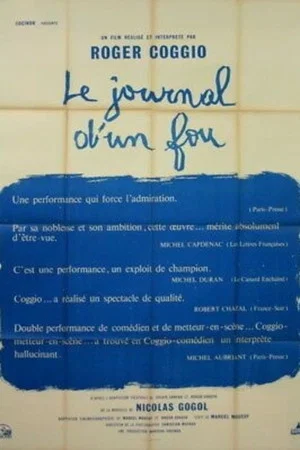 UN FILM RÉALISÉ ET INTERPRÉTÉ PAR
ROGER COGGIO
Le journal
d'un fou
Une performance qui force l'admiration.
(Paris-Presse)
Par sa noblesse et son ambition, cette œuvre... mérite absolument
d'être vue.
MICHEL CAPDENAC (Les Lettres Françaises)
C'est une performance, un exploit de champion.
MICHEL DURAN (Le Canard Enchaîné)
Coggio... a réalisé un spectacle de qualité.
ROBERT CHAZAL (France-Soir)
Double performance de comédien et de metteur-en-scène... Coggio-
metteur-en-scène... a trouvé en Coggio-comédien un interprète
hallucinant.
MICHEL AUBRIANT (Paris-Presse)
DE LA NOUVELLE DE NICOLAS GOGOL